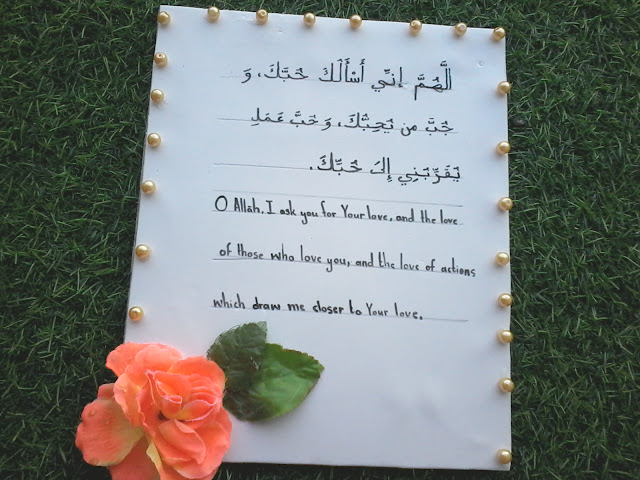 لَّهُمَّ إِنِّي أَسْأَلُكَ حُبَّكَ، وَ
حُبَّ مِن يُحِبُّكَ، وَحُبَّ عَمَلِ
يَقَرِّبُنِي إِلَى حُبِّكَ.
O Allāh, I ask you for Your love, and the love
of those who love you, and the love of actions
which draw me closer to Your love.